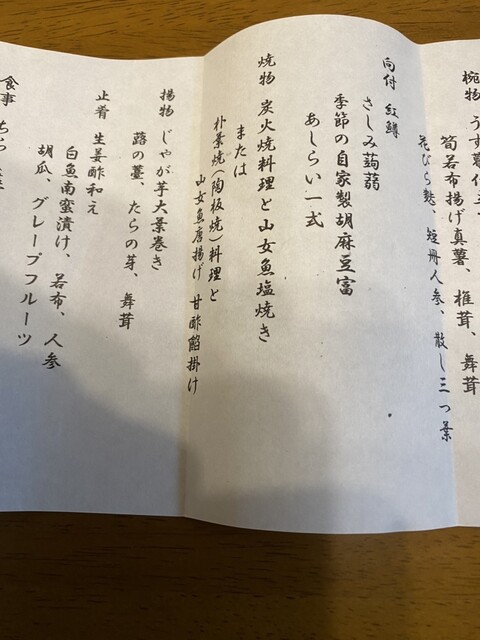 椀物 うす葛仕立て
筍若布揚げ真薯、椎茸、舞茸
花びら麩、短冊人参、散し三つ葉
向付 紅鱒
さしみ蒟蒻
季節の自家製胡麻豆富
あしらい一式
焼物 炭火焼料理と山女魚塩焼き
または
朴葉焼(陶板焼)料理と
山女魚唐揚げ 甘酢餡掛け
揚物 じゃが芋大葉巻き
蕗の薹、たらの芽、舞茸
止肴 生姜酢和え
白魚南蛮漬け、若布、人参
胡瓜、グレープフルーツ
食事 ちら